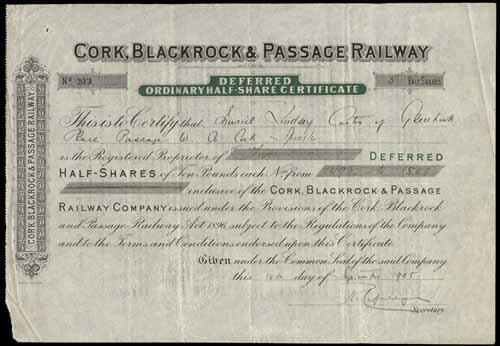 CORK, BLACKROCK & PASSAGE RAILWAY
No 203
DEFERRED
ORDINARY HALF-SHARE CERTIFICATE
5 HALF SHARES
This is to Certify that Muriel Lindsay of Glenbrook
Place Passage W. Co Cork
is the Registered Proprietor of Five DEFERRED
HALF-SHARES of Ten Pounds each, Nos. from to
inclusive of the CORK, BLACKROCK & PASSAGE
RAILWAY COMPANY issued under the Provisions of the Cork Blackrock
and Passage Railway Act 1896, subject to the Regulations of the Company
and to the Terms and Conditions endorsed upon this Certificate.
Given under the Common Seal of the said Company
this 14th day of September 1905
Secretary.
CORK BLACKROCK & PASSAGE RAILWAY